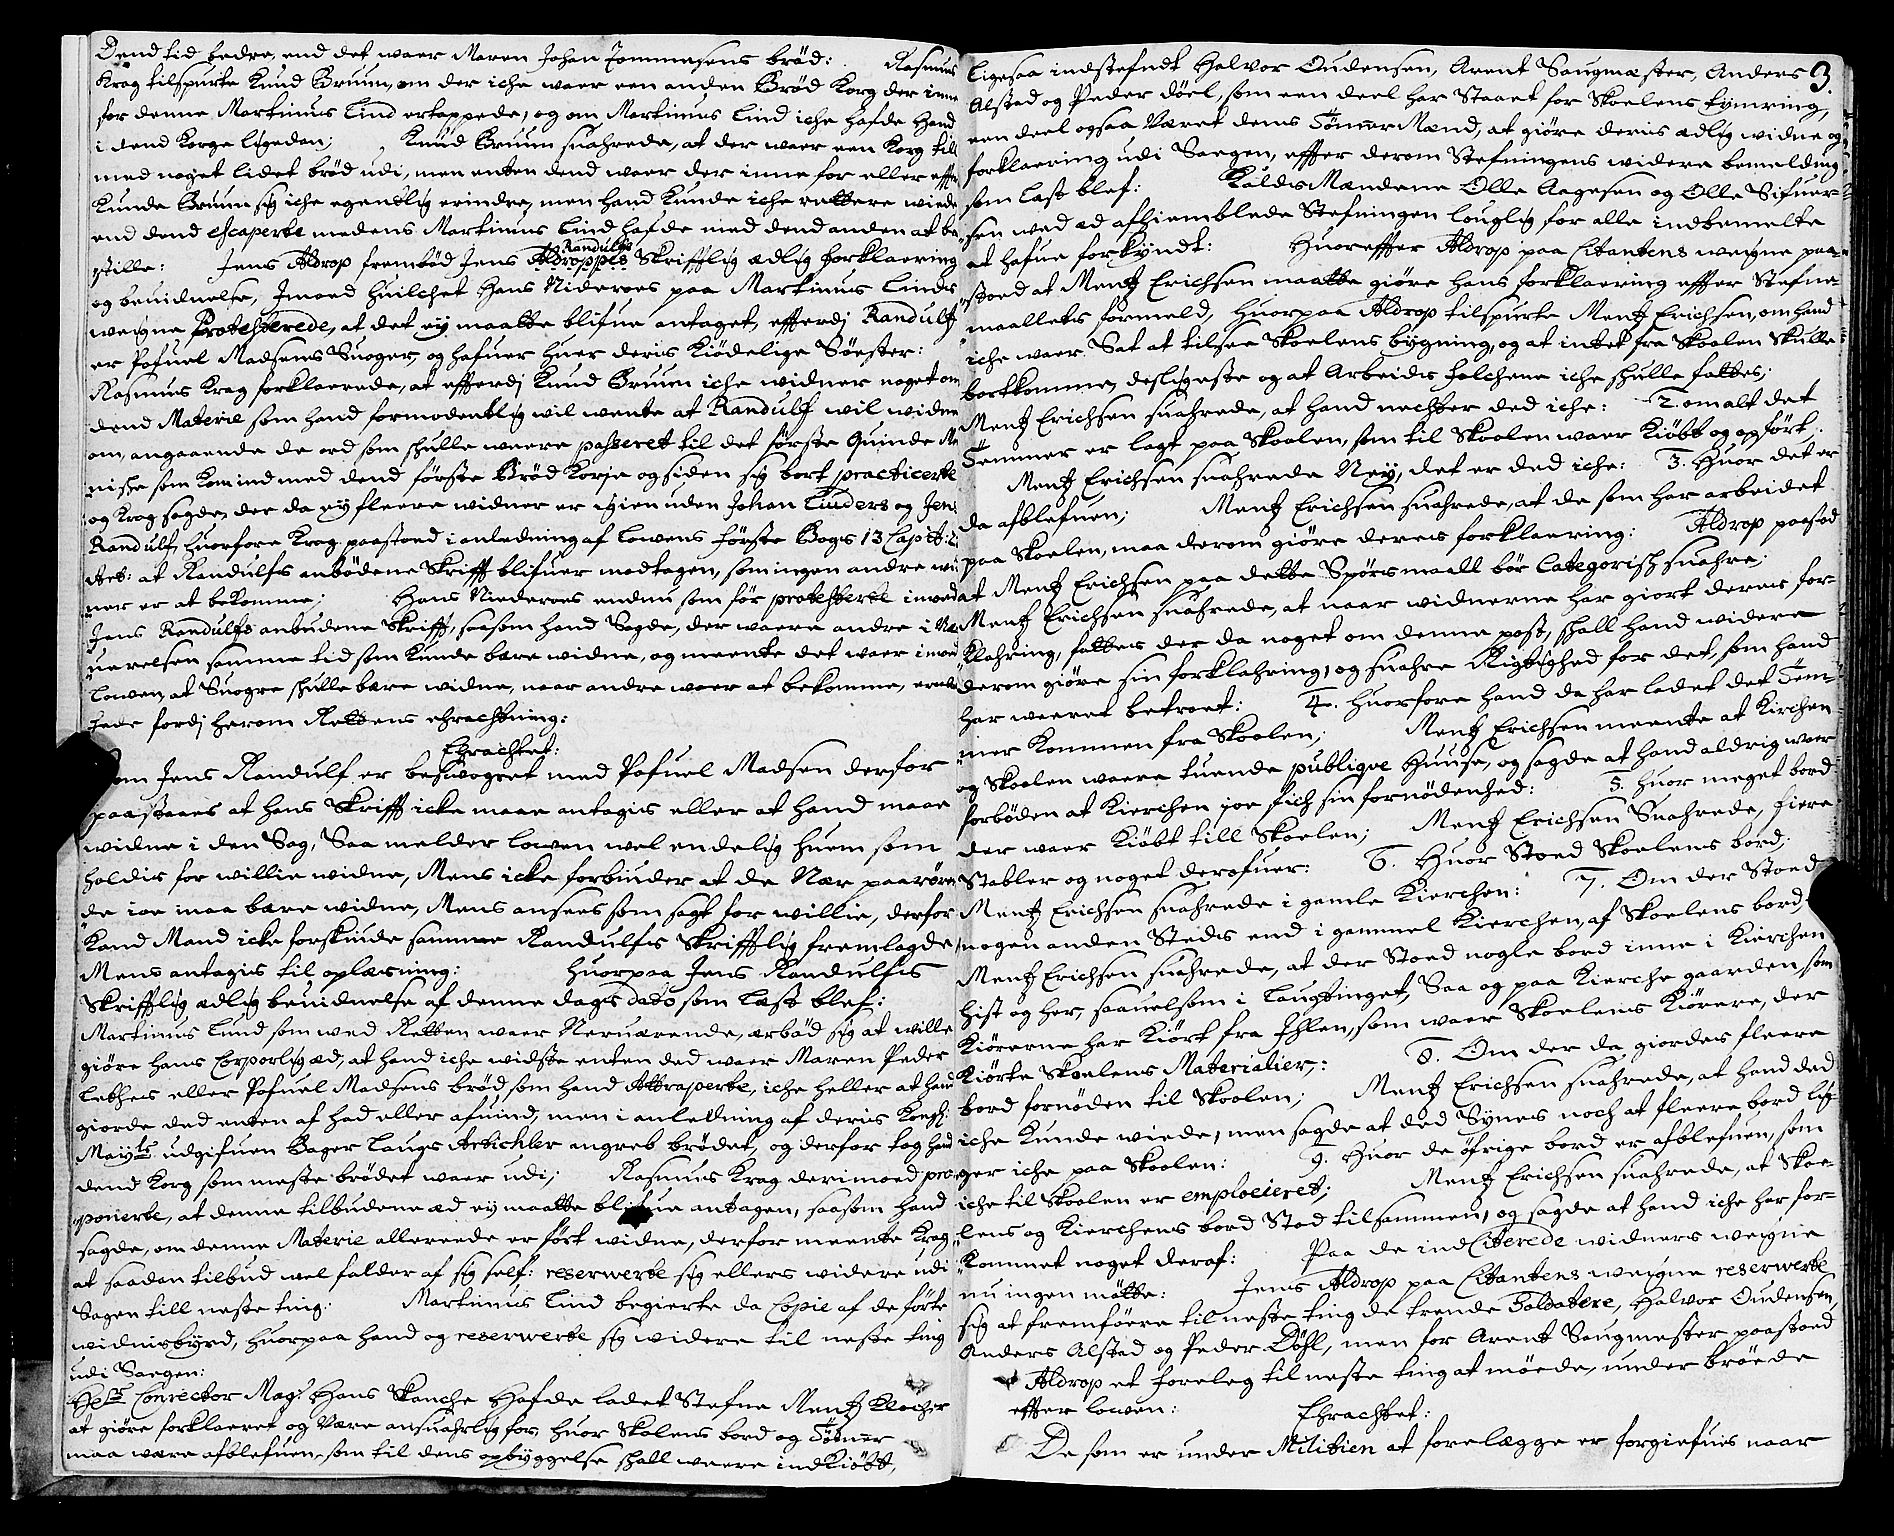 Dend tid bedre, end det waer Maren Johan Jommesens brød: Rasmus
Krag tilspurte Knud Bruun, om der iche waer een anden Brød Korg der inne
for denne Martinus Lind ertappede, og om Martinus Lind iche hafde hand
i dend Korge ligedan; Knud Bruun suahrede, at der waer een Korg till
med noget lidet brød udi, men enten dend waer der inne for eller effter
Kunde Bruun sig iche egendtlig erindre, men hand Kunde iche rettere wiede
end dend escaperte medens Martinus Lind hafde med dend anden at be-
stille: Jens Aldrop frembød Jens Randulfs Skrifftlig ædlig forklaering
og beuidnelse, Imoed huilchet Hans Nideroes paa Martinus Linds
weigne Protesterede, at det ey maatte blifue antaget, efferdj Randulf
er Pofuel Madsens Suoger, og hafuer huer deris Kiødelige Søester:
Rasmus Krag forklaerede, at efferdj Knud Bruun iche widner noget om
dend Materie som hand formodentlig wil wente at Randulf wil widne
om, angaaende de ord som skulle waere passeret til det første Quinde Me
niske som Kom ind med dend første Brød Korje og siden sig bort practicerte
og Krag sagde, der da ey fleere widner er igien uden Johan Luders og Jens
Randulf, huorfore Krag paastoed i anledning af lowens første Bogs 13 Capitt: 2
Art: at Randulfs anbødene Skrifft blifuer modtagen, som ingen andre wid
ner er at bekomme; Hans Niederoes endnu som før protesterte imod
Jens Randulfs anbudene Skrifft, saasom hand Sagde, der waere andre i Næ
uerelsen samme tid som Kunde bære widne, og meente det waer imod
lowen, at Suogre skulle bære widne, naar andre waer at bekomme,
fordj herom Rettens eragtning:
Eragtet:
Som Jens Randulf er besuogret med Pofuel Madsen derfor
paastaaes at hans Skrifft icke maae antagis eller at hand maae
widne i den Sag, Saa melder lowen wel endelig huem som
holdis for willie widne, Mens icke forbinder at de Nær paarøren
de ioe maa bære widne, Mens ansees som sagt for willie, derfor
Kand Mand icke forskinde samme Randulfs Skrifftlig fremlagde,
Mens antagis til oplæsning: Huorpaa Jens Randulfs
Skrifftlig ædlig beuidnelse af denne dags dato som læst blef:
Martinus Lind som wed Retten waer Neruærende, ærbød sig at wille
giøre hans Corporlig æd, at hand iche widste enten ded waer Maren Peder
Letthes eller Pofuel Madsens brød, som hand Attraperte, iche heller at hand
giorde ded enten af had eller afuind, men i anledning af deris Kongl:
Mayts udgifuen Bager Laugs Artichler angreb brødet, og derfor tog hand
dend Korg som meste brødet waer udi; Rasmus Krag derimoed pro-
ponerte, at denne tilbudene æd ey maatte blifue antagen, saasom hand
sagde, om denne Materie allereede er ført widne, derfor meente Krag
at saadan tilbud wel falder af sig self: reserwerte sig ellers widere udi
Sagen till neste ting: Martinus Lind begierte da Copie af de førte
widnisbyrd, huorpaa hand og reserwerte sig widere til neste ting
udi Saegen:
Hr Conrector Magr Hans Skanche hafde ladet Stefne Mentz Klocher
at giøre forklaeret og Være ansuahrlig for, huor Skolens bord og Tømmer
maa være afblefuen, som til dens opbyggelse skall waere indKiøbt,
3.
Ligesaa indstefndt Halvor Oudensen, Arent Saugmæster, Anders
Alstad og Peder Døel, som een deel har Staaet for Skoelens tymring,
een deel ogsaa Været dens TømmerMænd, at giøre deris ædlig widne og
forklaering udi Saegen, effter derom Stefningens widere bemelding
som læst blef: KaldsMændene Olle Aagesen og Olle Sifuer-
sen wed æd afhiemblede Stefningen louglig for alle indbemelte
at hafue forkyndt: Huoreffter Aldrop paa Citantens weigne paa-
stoed at Mentz Erichsen maatte giøre hans forklaering effter Stefne-
maallets formeld, huorpaa Aldrop tilspurte Mentz Erichsen, om hand
iche waer Sat at tilsee Skoelens bygning, og at intet fra Skoelen Skulle
bortkomme, desligeste og at Arbeids folchene iche skulle fattes;
Mentz Erichsen suahrede, at hand nechter ded iche: 2. om alt det
Temmer er lagt paa Skoelen, som til Skoelen waer Kiøbt og opført.
Mentz Erichsen suahrede Ney, det er ded iche: 3. Huor det er
da afblefuen; Mentz Erichsen suahrede, at de som har arbeidet
paa Skoelen, maa derom giøre deres forklaering: Aldrop paastod
at Mentz Erichsen paa dette Spørsmaall bør Categorisch suahre;
Mentz Erichsen suahrede, at naar widnerne har giort deres for-
Klahring, fattes der da noget om denne post, skall hand widere
derom giøre sin forklahring, og suahre Rigtighed for det, som hand
har waeret betroet: 4. Huorfore hand da har ladet det Tem-
mer Kommen fra Skoelen; Mentz Erichsen meente at Kirchen
og Skoelen waere tuende publiqve Huuse, og sagde at hand aldrig waer
forbøden at Kierchen joe fich sin fornødenhed: 5. Huor meget bord
der waer Kiøbt till Skoelen; Mentz Erichsen Suahrede, fiere
Stabler og noget derofuer: 6. Huor Stoed Skoelens bord:
Mentz Erichsen suahrede i gamle Kierchen: 7. Om der Stoed
nogen anden Steds end i gammel Kierchen, af Skoelens bord,
Mentz Erichsen suahrede, at der Stoed nogle bord inne i Kierchen
hist og her, saauelsom i Laugtinget, Saa og paa Kierche gaarden som
Kiørerne har Kiørt fra Ihlen, som waer Skoelens Kiørere, der
Kiørte Skoelens Materialier,: 8. Om der da giordes fleere
bord fornøden til Skoelen; Mentz Erichsen suahrede, at hand ded
iche Kunde wiede, men sagde at ded Synes noch at fleere bord lig-
ger iche paa Skoelen: 9. Huor de øfrige bord er afblefuen, som
iche til Skoelen er emploeieret; Mentz Erichsen suahrede, at Skoe-
lens og Kierchens bord Stod tilsammen, og sagde at hand iche har for-
Kommet noget deraf: Paa de ind Citerede widners weigne
nu ingen mötte: Jens Aldrop paa Citantens weigne reserwerte
sig at fremføere til neste ting de trende Soldatere, Halvor Oudensen,
Anders Alstad og Peder Döhl, men for Arent Saugmester paastoed
Aldrop et foreleg til neste ting at møede, under brøede
effter lowen: Eragtet:
De som er under Militien at forelægge er forgiefues naar